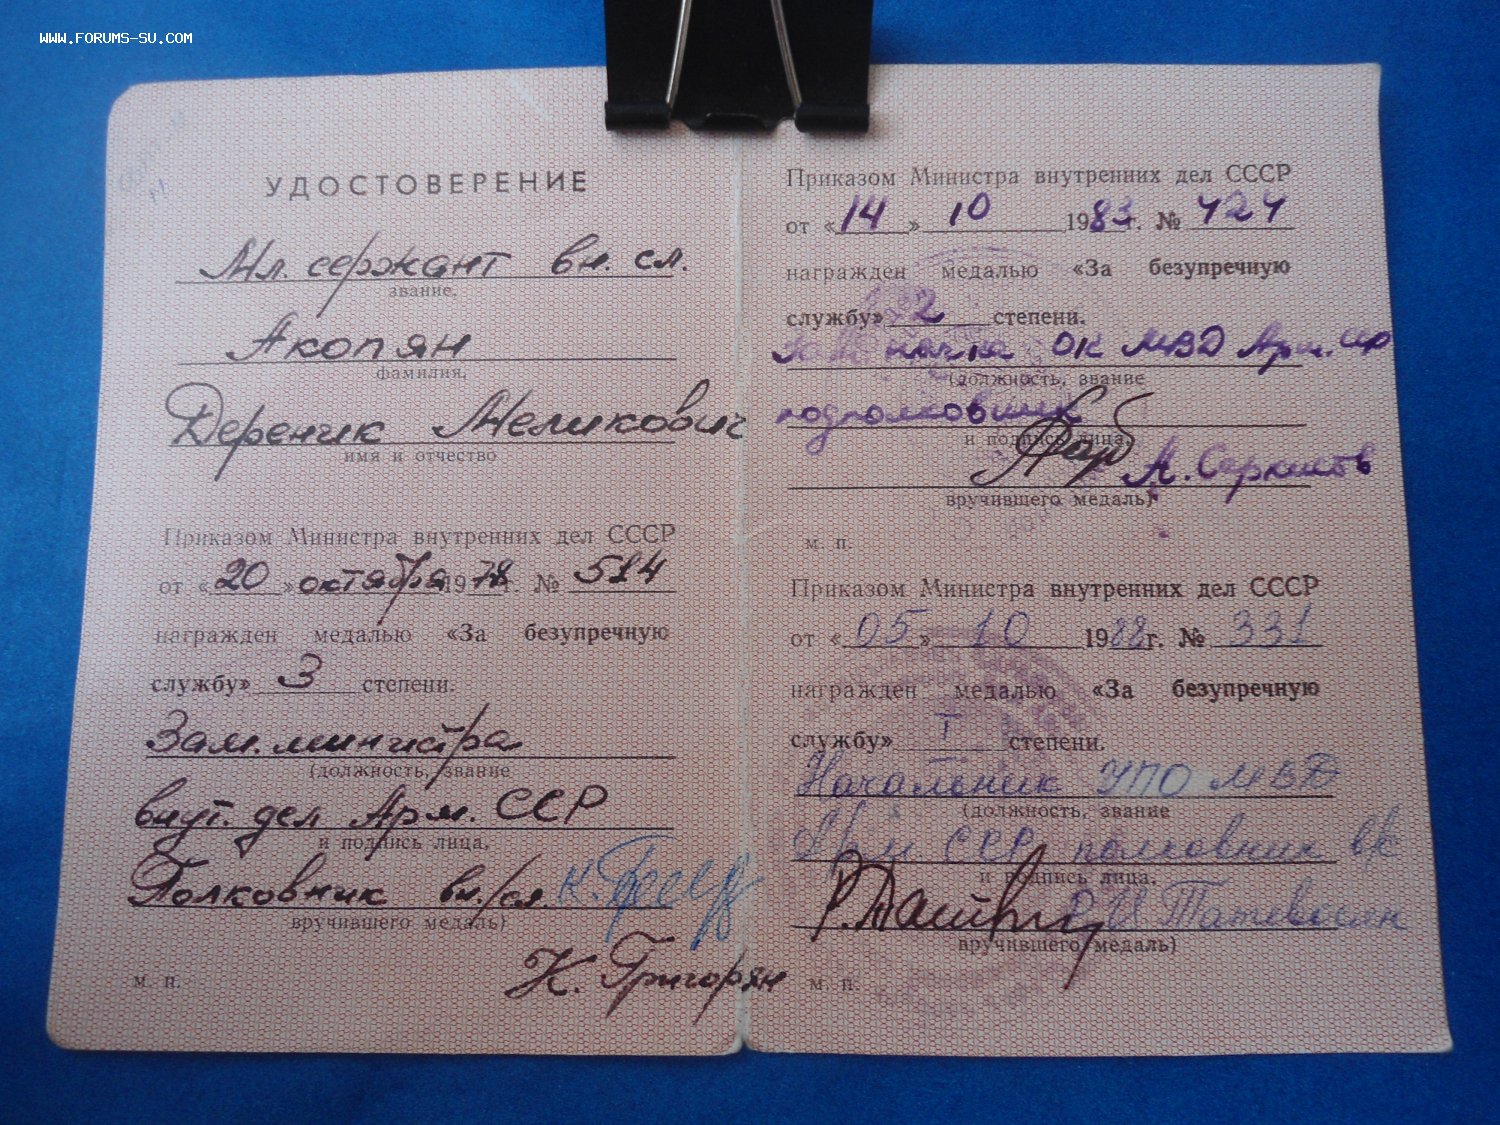 WWW.FORUMS-SU.COM
УДОСТОВЕРЕНИЕ
Мл. сержант вн. сл.
звание,
Акопян
фамилия,
Дереник Меликович
имя и отчество
Приказом Министра внутренних дел СССР
от «20» октября 1978 г. № 514
награжден медалью «За безупречную
службу» 3 степени.
Зам. министра
(должность, звание
внут. дел Арм. ССР
и подпись лица,
Полковник вн. сл.
вручившего медаль)
К. Григорян
м. п.
Приказом Министра внутренних дел СССР
от «14» 10 1983 г. № 424
награжден медалью «За безупречную
службу» 2 степени.
ОК МВД Арм. ССР
(должность, звание
подполковник
и подпись лица,
А. Саркисов
вручившего медаль)
м. п.
Приказом Министра внутренних дел СССР
от «05» 10 1988 г. № 331
награжден медалью «За безупречную
службу» I степени.
Начальник УПО МВД
(должность, звание
Арм ССР полковник вс
и подпись лица,
Р. И Татевосян
вручившего медаль)
м. п.